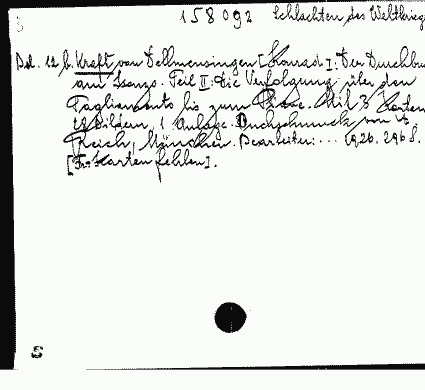 158092 Schlachten des Weltkrieg
Bd. 12 b. Kraft von Dellmensingen [Konrad]: Der Durchbru
am Isonzo. Teil II: Die Verfolgung über den
Tagliamento bis zum Piave. Mit 3 Karten
Bildern, 1 Anlage. Buchschmuck von
Reich, München. Bearbeiter: ... 1926. 296 S.
[Karten fehlen].
S